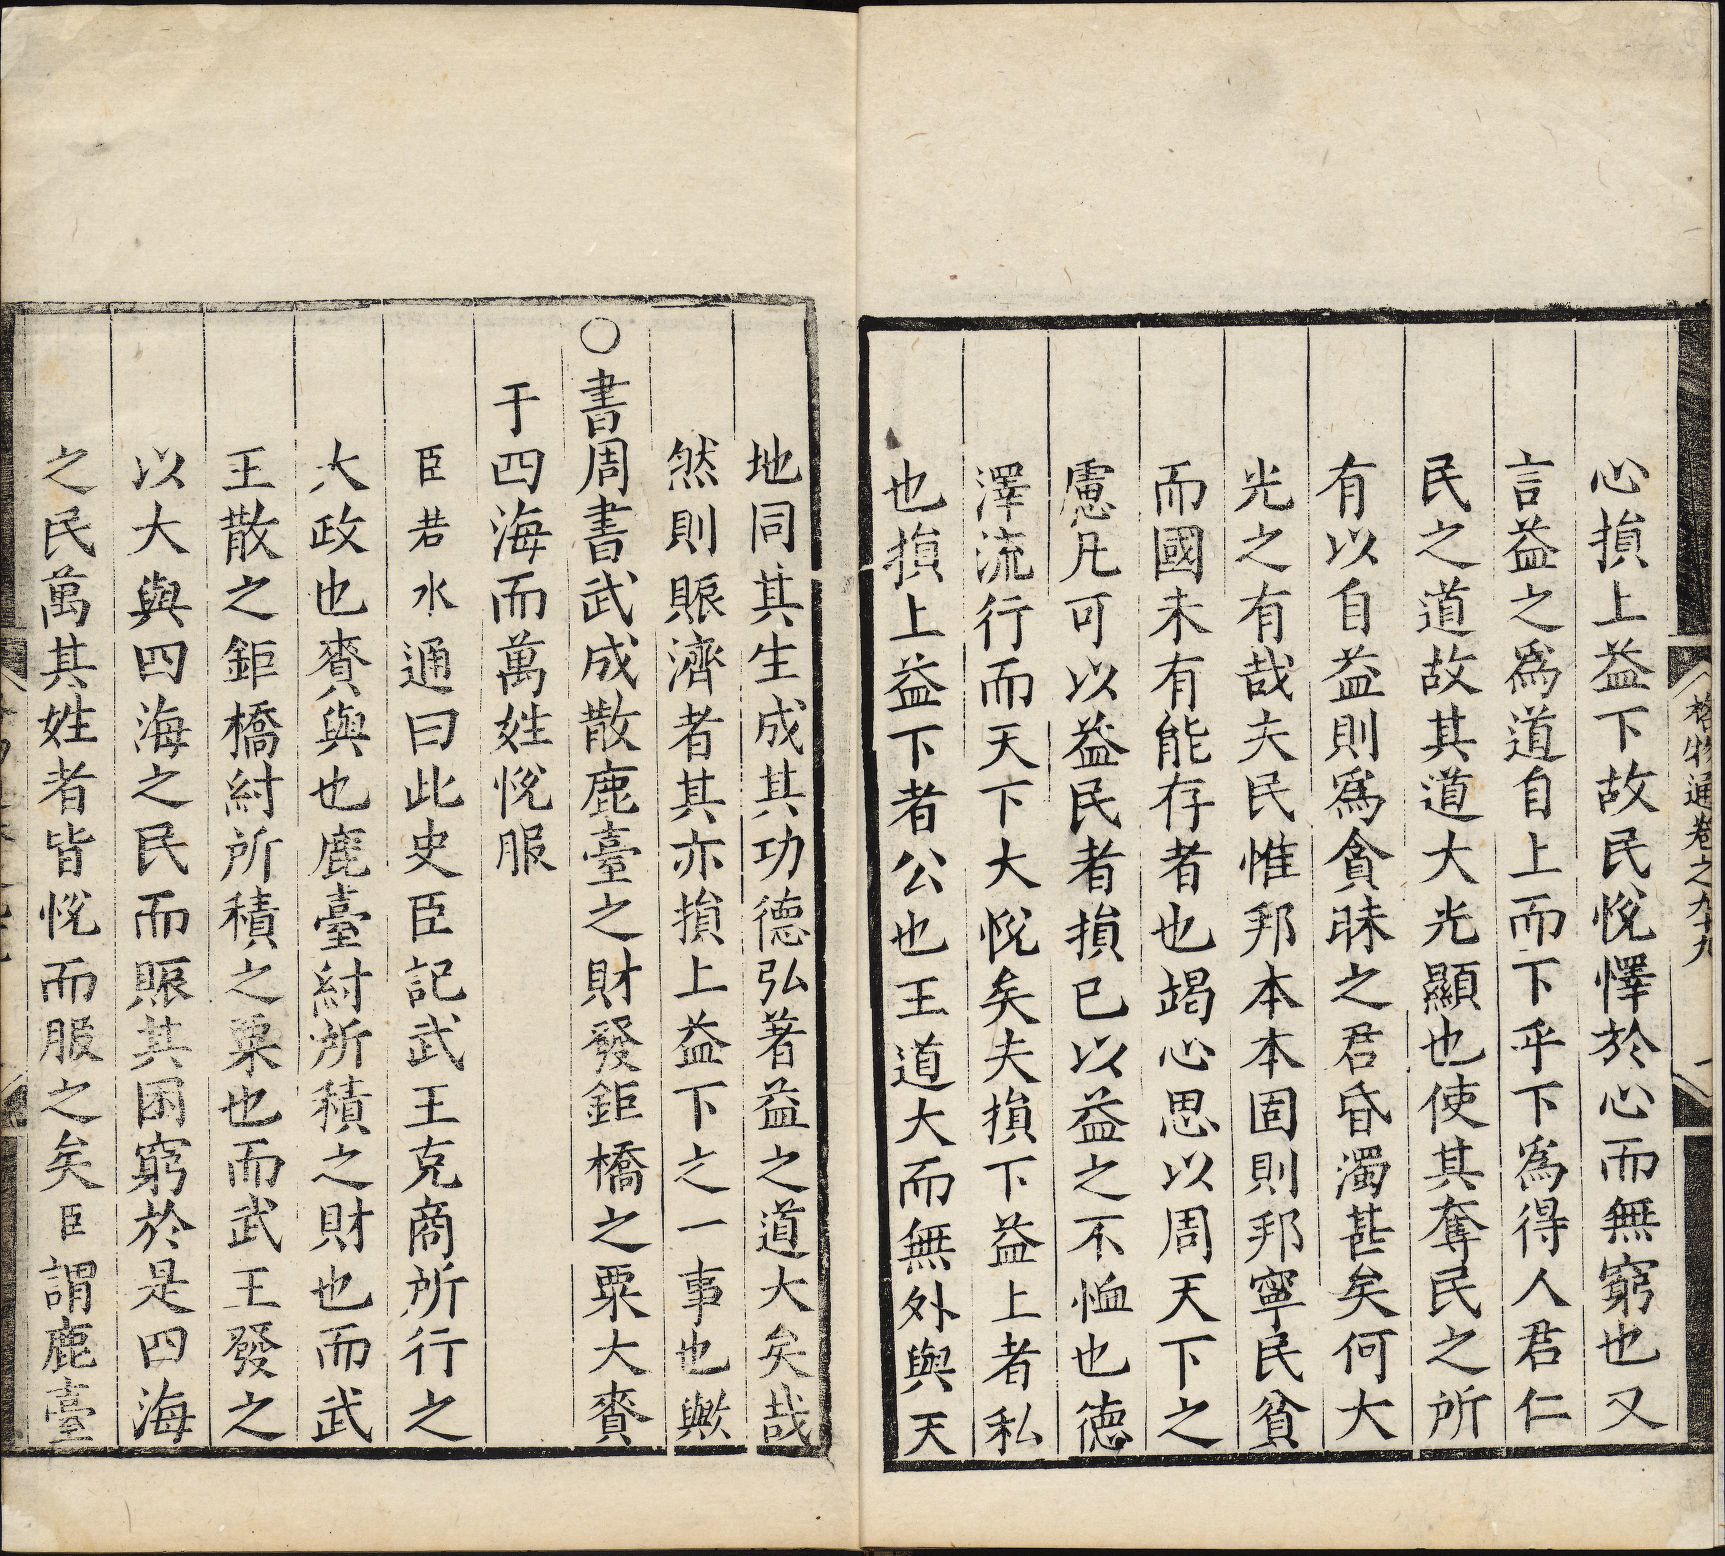 格物通卷之九十九
心損上益下故民悅懌於心而無窮也又
言益之爲道自上而下乎下爲得人君仁
民之道故其道大光顯也使其奪民之所
有以自益則爲貪昧之君昏濁甚矣何大
光之有哉夫民惟邦本本固則邦寧民貧
而國未有能存者也竭心思以周天下之
慮凡可以益民者損已以益之不恤也德
澤流行而天下大悅矣夫損下益上者私
也損上益下者公也王道大而無外與天
地同其生成其功德弘著益之道大矣哉
然則賑濟者其亦損上益下之一事也歟
○書周書武成散鹿臺之財發鉅橋之粟大賚
于四海而萬姓悅服
臣若水通曰此史臣記武王克商所行之
大政也賚與也鹿臺紂所積之財也而武
王散之鉅橋紂所積之粟也而武王發之
以大與四海之民而賑其困窮於是四海
之民萬其姓者皆悅而服之矣臣謂鹿臺